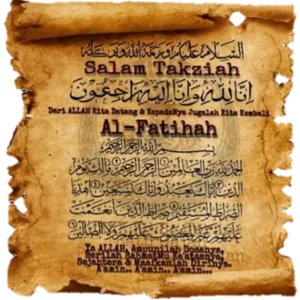 السلام عليكم ورحمة الله وبركاته
Salam Takziah
إنا لله وإنا إليه راجعون
Dari ALLAH Kita Datang & KepadaNya Jugalah Kita Kembali
Al-Fatihah
بسم الله الرحمن الرحيم
الحمد لله رب العالمين الرحمن الرحيم مالك يوم
الدين إياك نعبد وإياك نستعين اهدنا
الصراط المستقيم صراط الذين أنعمت
عليهم غير المغضوب عليهم ولا الضالين
Ya ALLAH, Ampunilah Dosanya,
Berilah RahmatMu Ke'atasnya,
Sejahtera & Maafkanlah Dirinya.
A'amin.. A'amin.. A'amin...